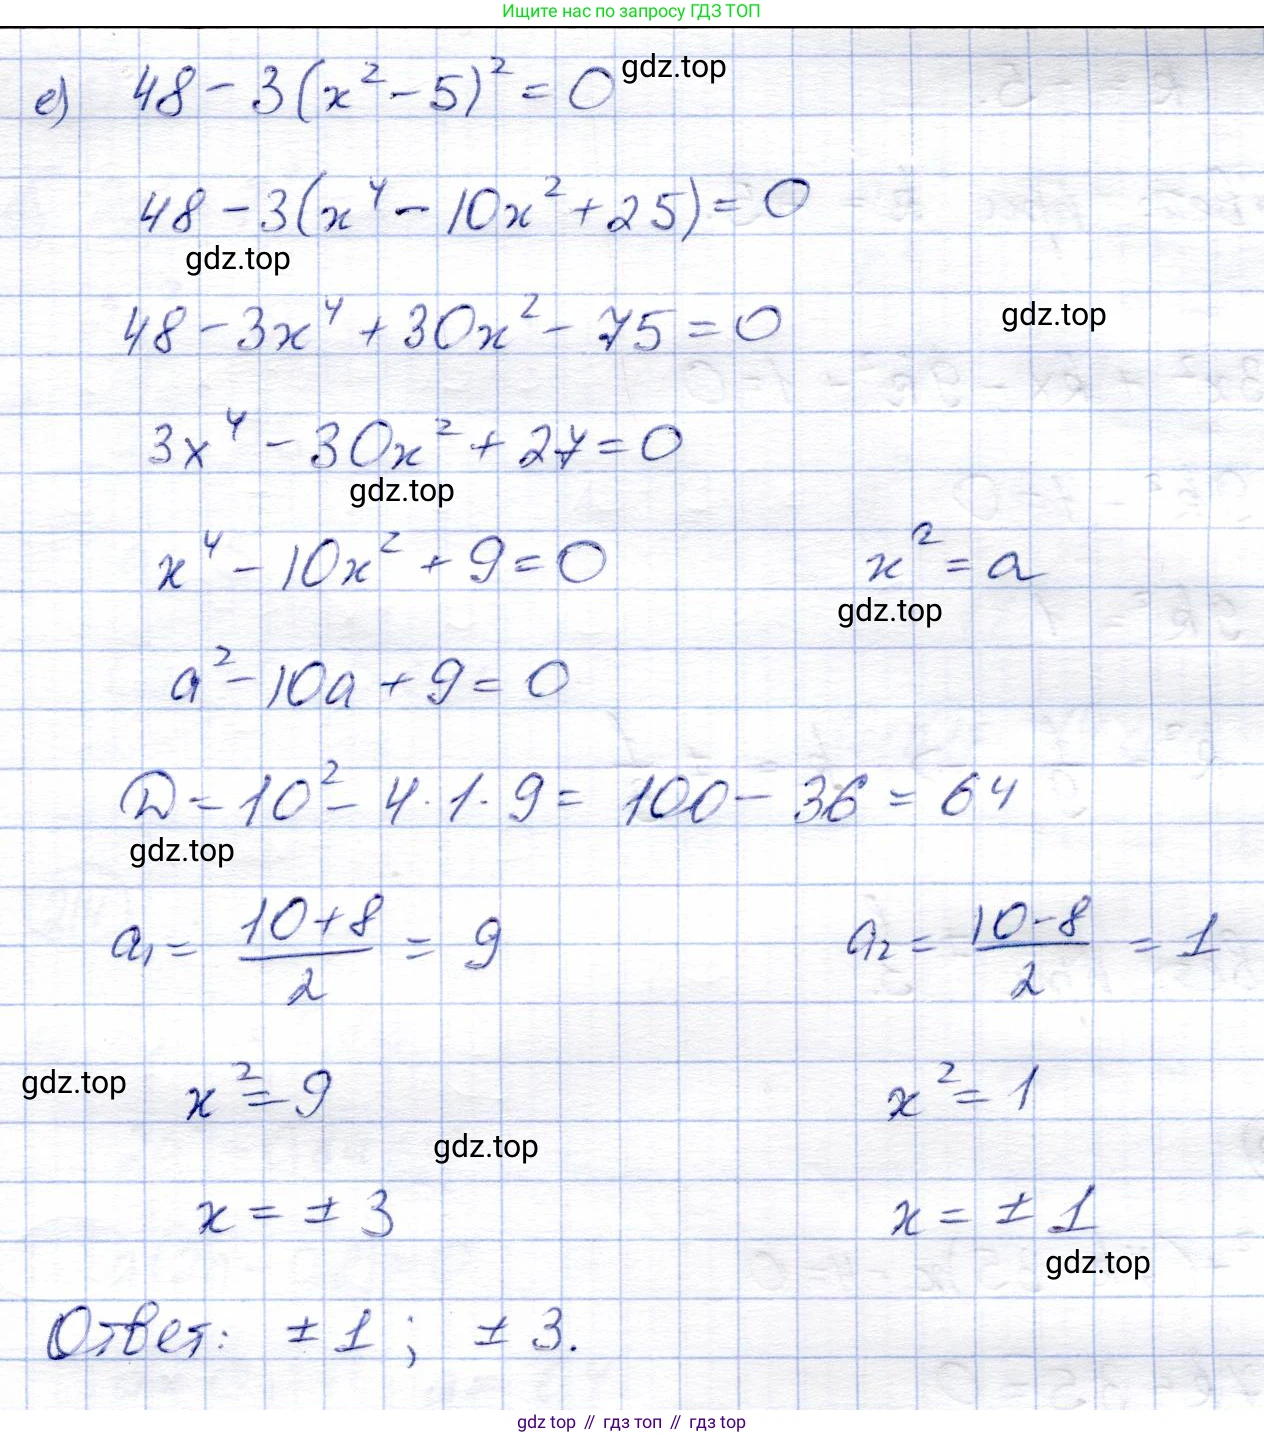 Ищите нас по запросу ГДЗ ТОП
е) 48 - 3(x² - 5)² = 0 gdz.top
48 - 3(x⁴ - 10x² + 25) = 0
gdz.top
48 - 3x⁴ + 30x² - 75 = 0 gdz.top
3x⁴ - 30x² + 27 = 0
gdz.top
x⁴ - 10x² + 9 = 0 x² = a
gdz.top
a² - 10a + 9 = 0
D = 10² - 4 · 1 · 9 = 100 - 36 = 64
gdz.top
a₁ = (10+8)/2 = 9 a₂ = (10-8)/2 = 1
gdz.top x² = 9 x² = 1
gdz.top
x = ± 3 x = ± 1
gdz.top
Ответ: ± 1 ; ± 3.
gdz top // гдз топ // gdz top